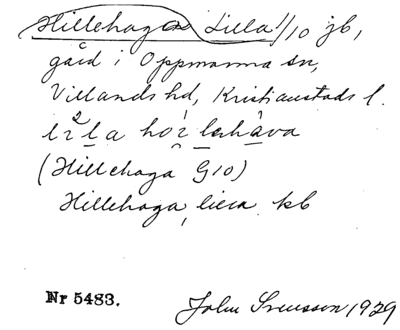 Hillehaga Lilla 1/10 jb,
gård i Oppmanna sn,
Villands hd, Kristianstads l.
(Hillehaga G10)
Hillehaga, lilla kb
Nr 5483. John Svensson 1929